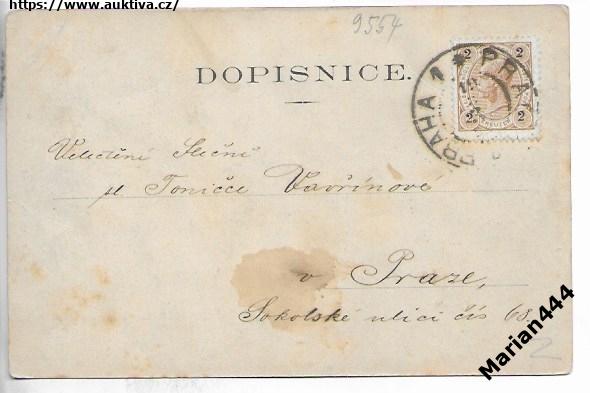 https://www.auktiva.cz/
9554
DOPISNICE.
PRAHA 1 * PRA
2 2
2 2
Veletěné Slečně
sl Toničce Vavřínové
v Praze,
Sokolské ulici čís 68.
Marian444
2